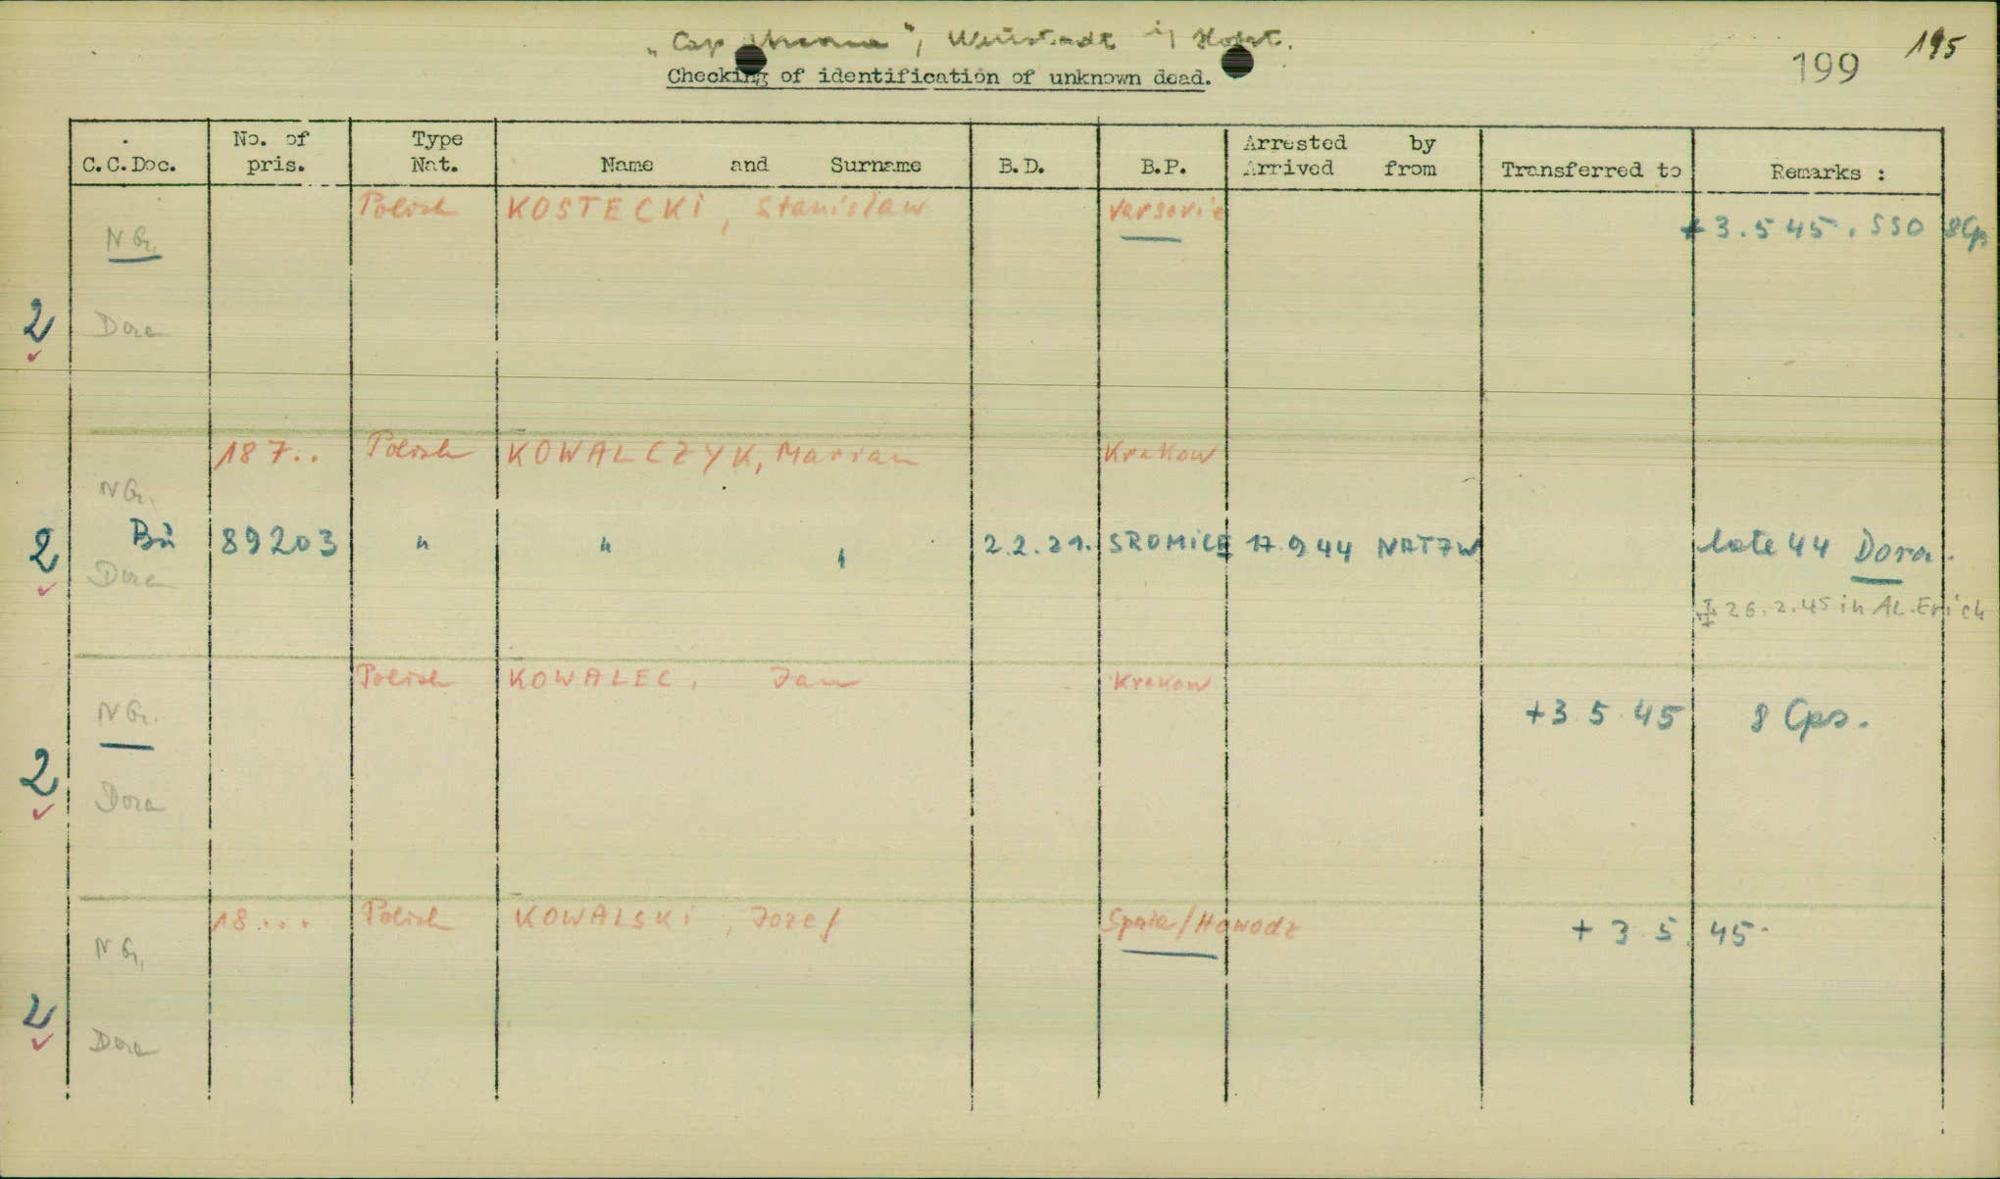 „Cap Arcona“, Neustadt i/ Holst.
195
199
Checking of identification of unknown dead.
C.C.Doc. No. of pris. Type Nat. Name and Surname B.D. B.P. Arrested by Arrived from Transferred to Remarks :
Polish KOSTECKI, Stanislaw Varsovie
N Gr. + 3.5 45. SSO 8Cps
2 Dora
187.. Polish KOWALCZYK, Marian Krakow
N Gr.
2 Bu 89203 " " , 2.2.21. SROMICE 17.9 44 NATZW late 44 Dora.
Dora
26.2.45 in AL. Erich
Polish KOWALEC, Jan Krakow
N Gr. +3 5 45 8 Cps.
2 Dora
18... Polish KOWALSKI, Jozef Spala/Hawodz
N Gr. + 3 5. 45.
2 Dora